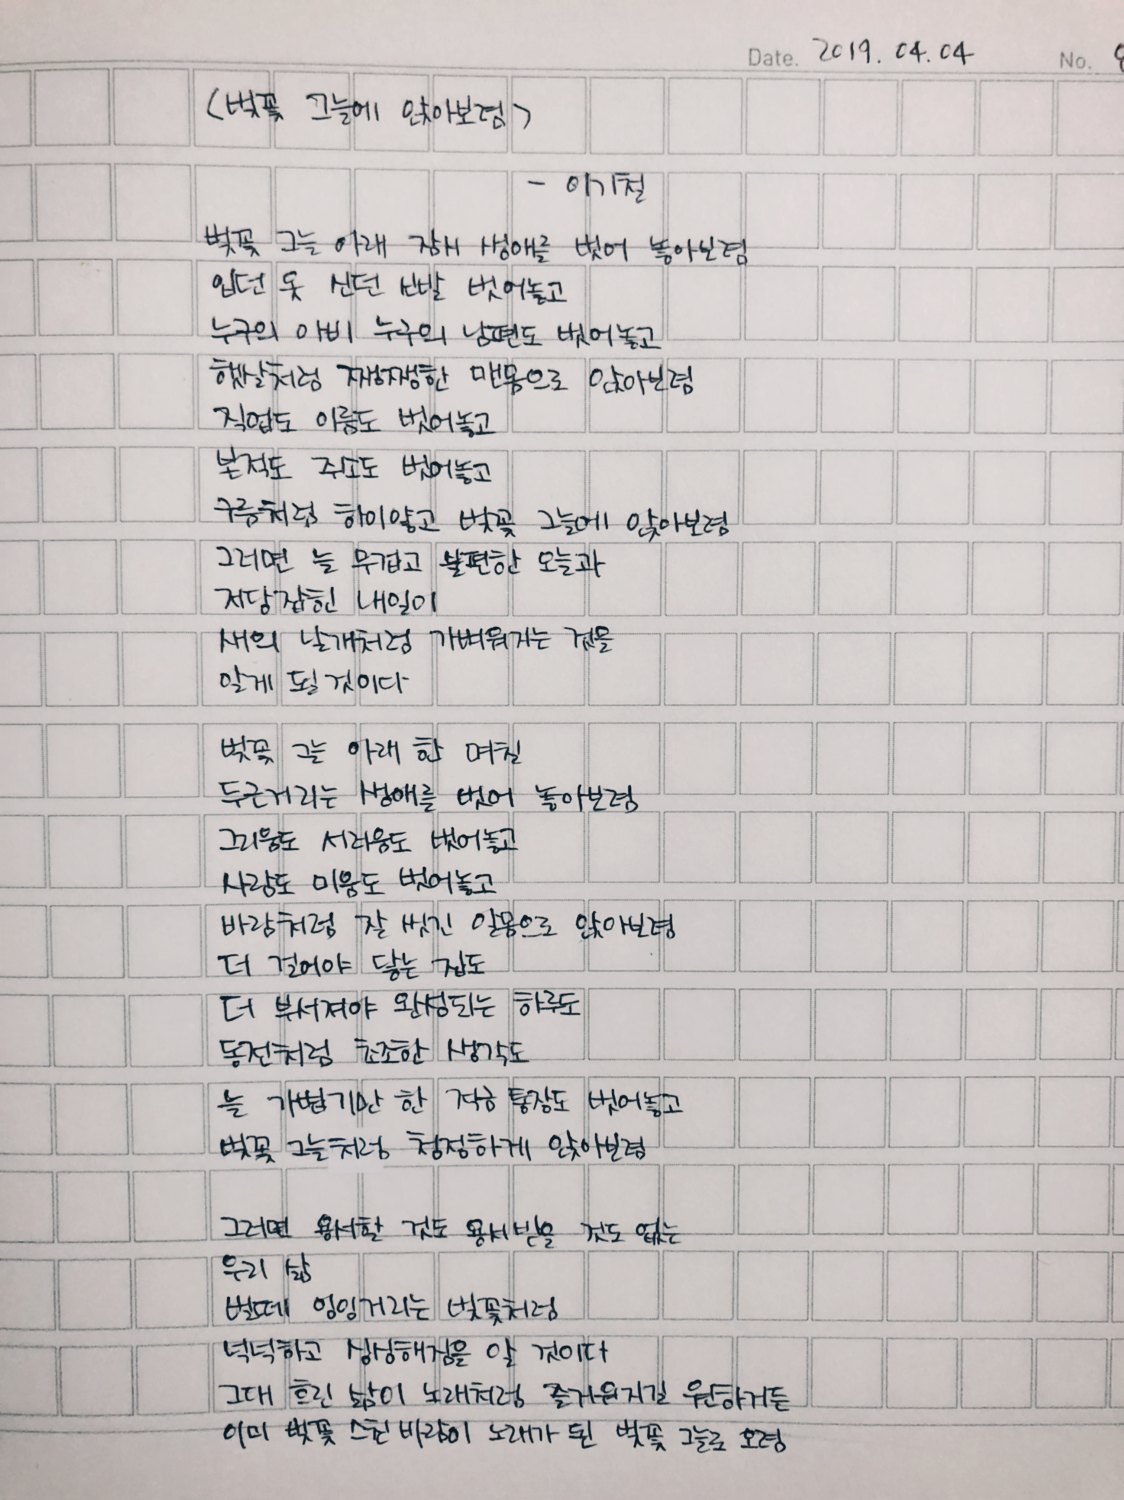 Date. 2019. 04. 04 No.
<벚꽃 그늘에 앉아보렴>
- 이기철
벚꽃 그늘 아래 잠시 생애를 벗어 놓아보렴
입던 옷 신던 신발 벗어놓고
누구의 아비 누구의 남편도 벗어놓고
햇살처럼 쨍쨍한 맨몸으로 앉아보렴
직업도 이름도 벗어놓고
본적도 주소도 벗어놓고
구름처럼 하이얗고 벚꽃 그늘에 앉아보렴
그러면 늘 무겁고 불편한 오늘과
저당잡힌 내일이
새의 날개처럼 가벼워지는 것을
알게 될 것이다
벚꽃 그늘 아래 한 며칠
두근거리는 생애를 벗어 놓아보렴
그리움도 서러움도 벗어놓고
사랑도 미움도 벗어놓고
바람처럼 잘 씻긴 알몸으로 앉아보렴
더 걸어야 닿는 집도
더 부서져야 완성되는 하루도
동전처럼 초조한 생각도
늘 가볍기만 한 적금 통장도 벗어놓고
벚꽃 그늘처럼 청정하게 앉아보렴
그러면 용서할 것도 용서받을 것도 없는
우리 삶
벌떼 잉잉거리는 벚꽃처럼
넉넉하고 싱싱해짐을 알 것이다
그대 흐린 삶이 노래처럼 즐거워지길 원하거든
이미 벚꽃 스친 바람이 노래가 된 벚꽃 그늘로 오렴